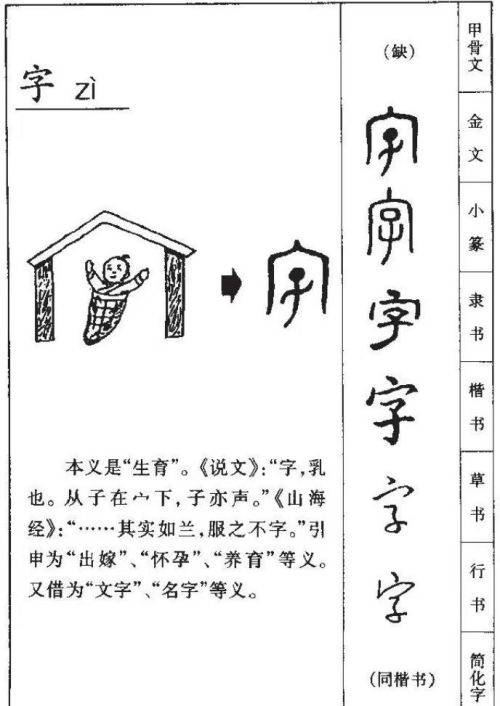 字 zì
本义是“生育”。《说文》：“字，乳
也。从子在宀下，子亦声。”《山海
经》：“……其实如兰，服之不字。”引
申为“出嫁”、“怀孕”、“养育”等义。
又借为“文字”、“名字”等义。
字
（缺）
字
字
字
字
字
字
（同楷书）
甲骨文
金文
小篆
隶书
楷书
草书
行书
简化字